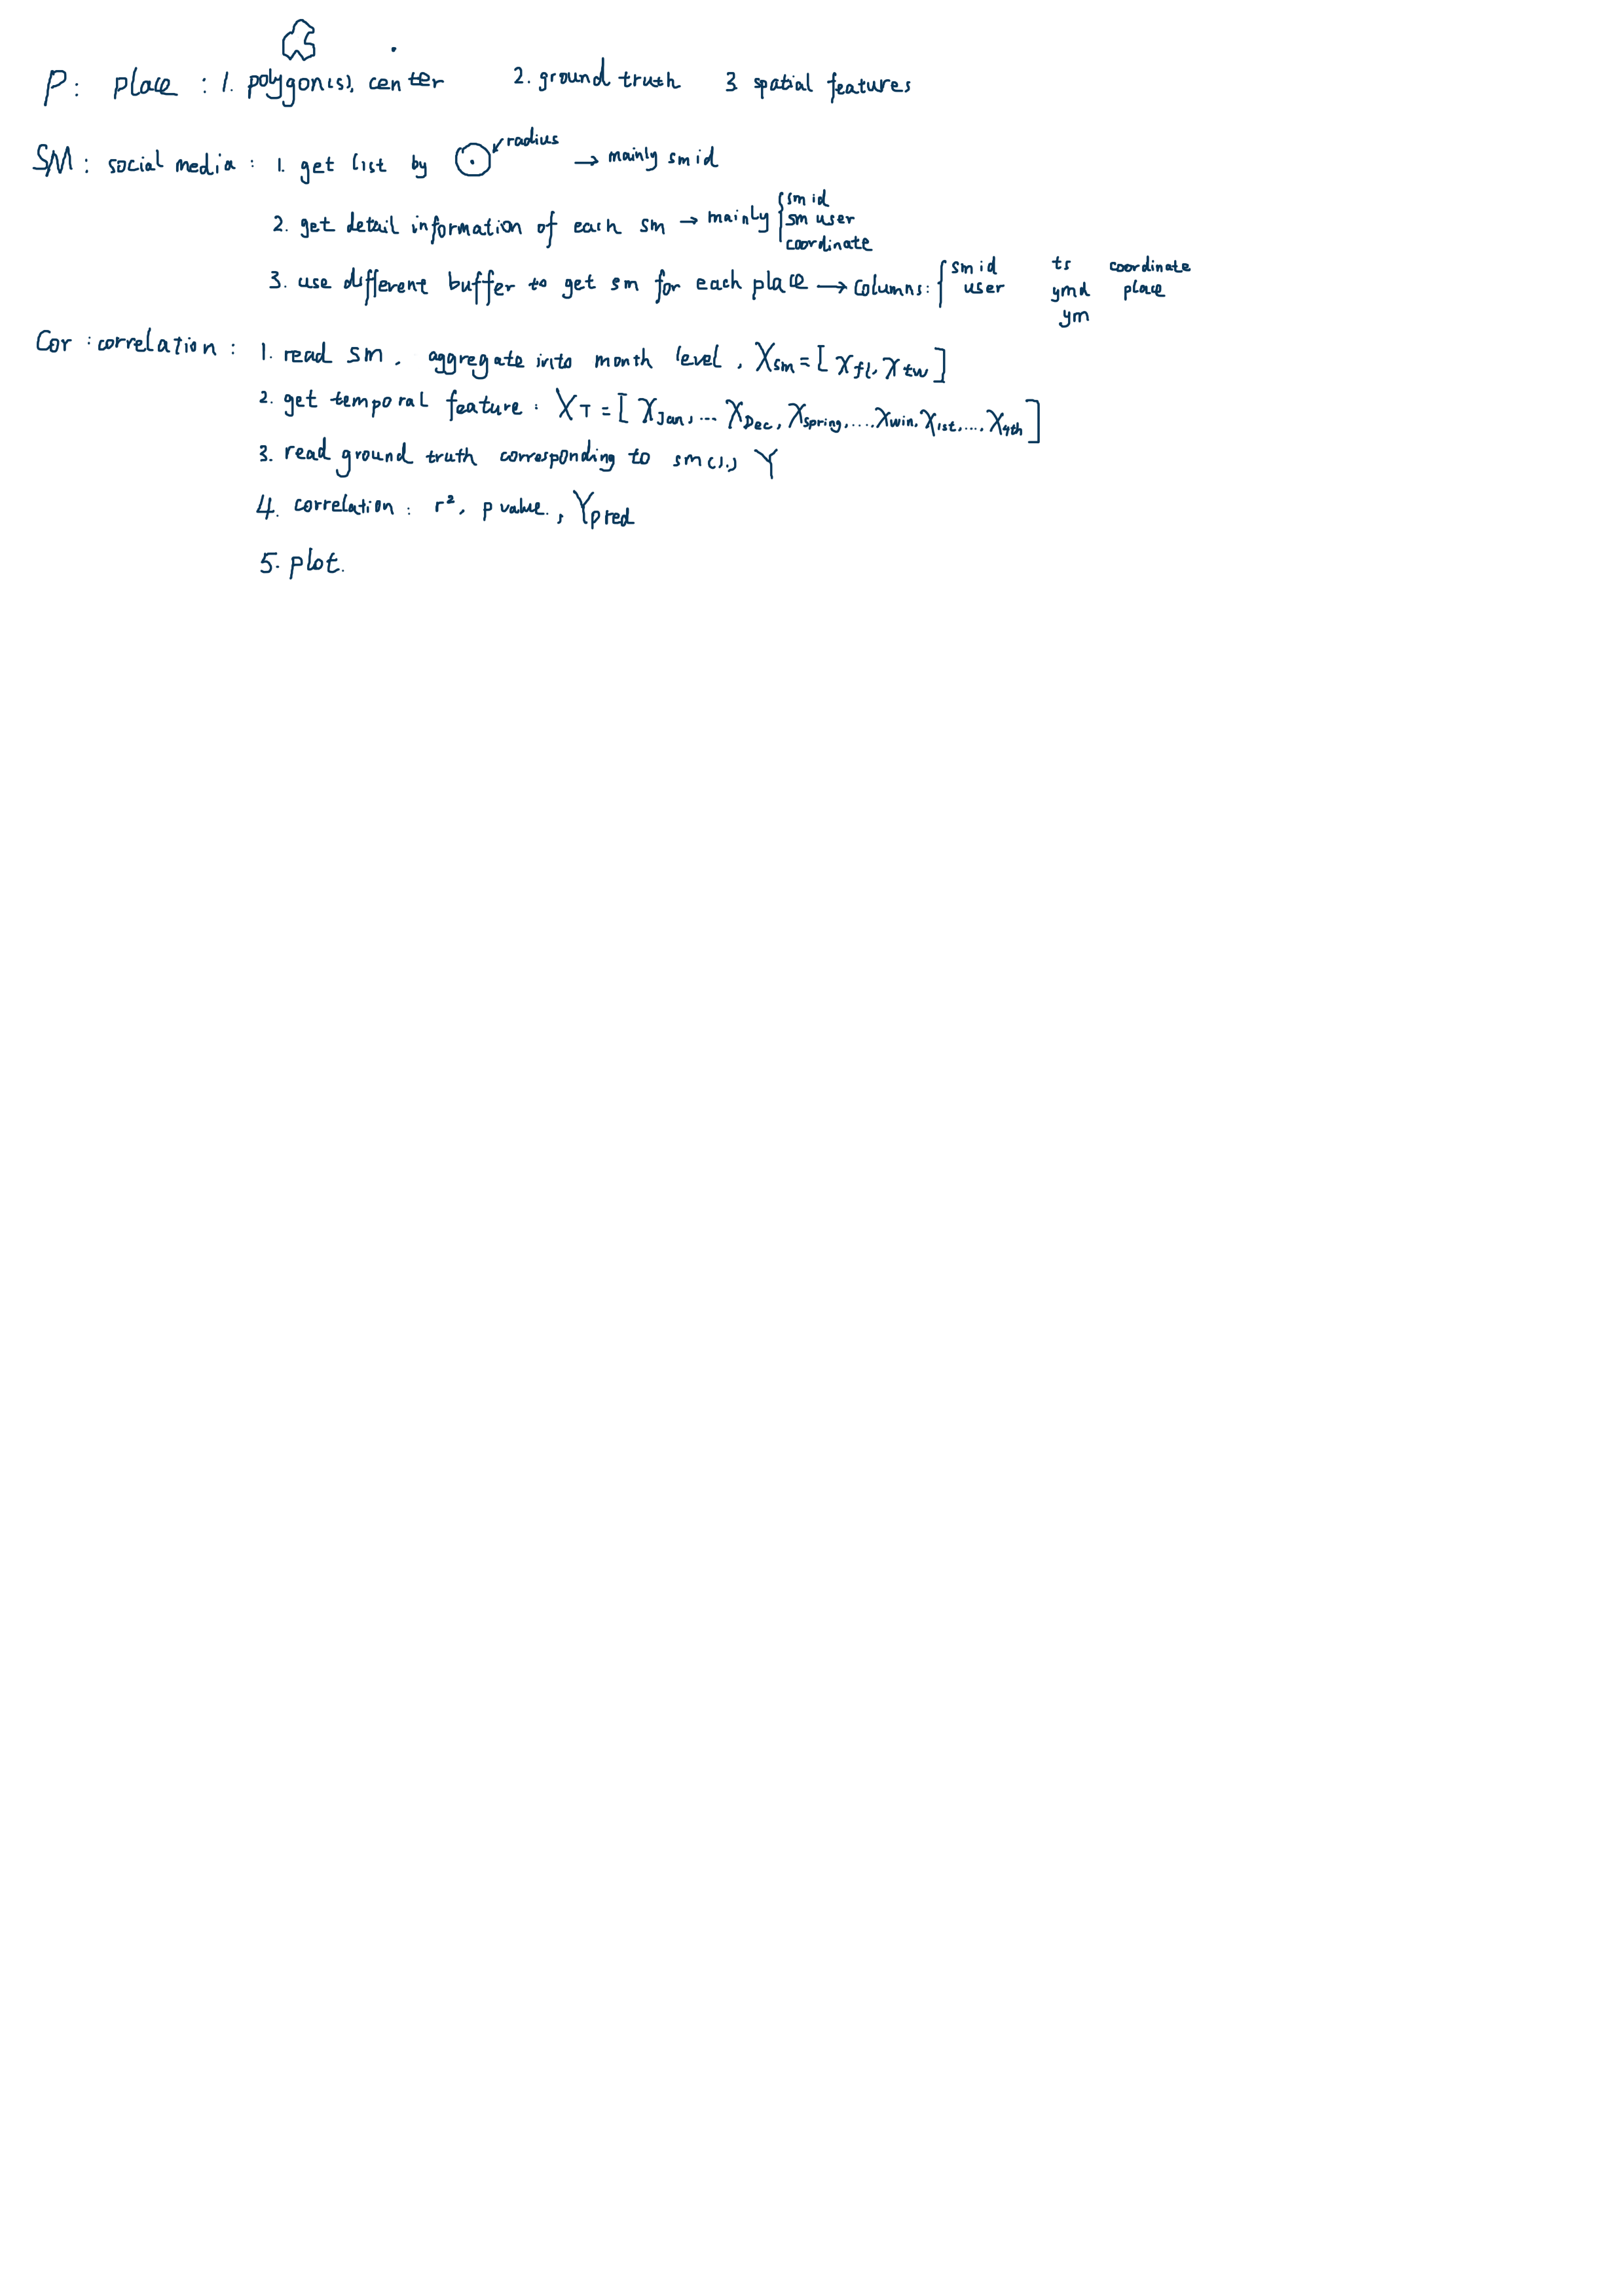 P: place : 1. polygon(s), center 2. ground truth 3. spatial features
SM: social media : 1. get list by radius → mainly sm id
2. get detail information of each sm → mainly { sm id
sm user
coordinate
3. use different buffer to get sm for each place → columns: { sm id ts coordinate
user ymd place
ym
Cor : correlation : 1. read sm. aggregate into month level, X_sm = [x_fl, x_tw]
2. get temporal feature : X_T = [x_Jan, ... x_Dec, x_spring, ... x_win, x_1st, ..., x_4th]
3. read ground truth corresponding to sm(1.) Y
4. correlation : r², p value., Y_pred
5. plot.